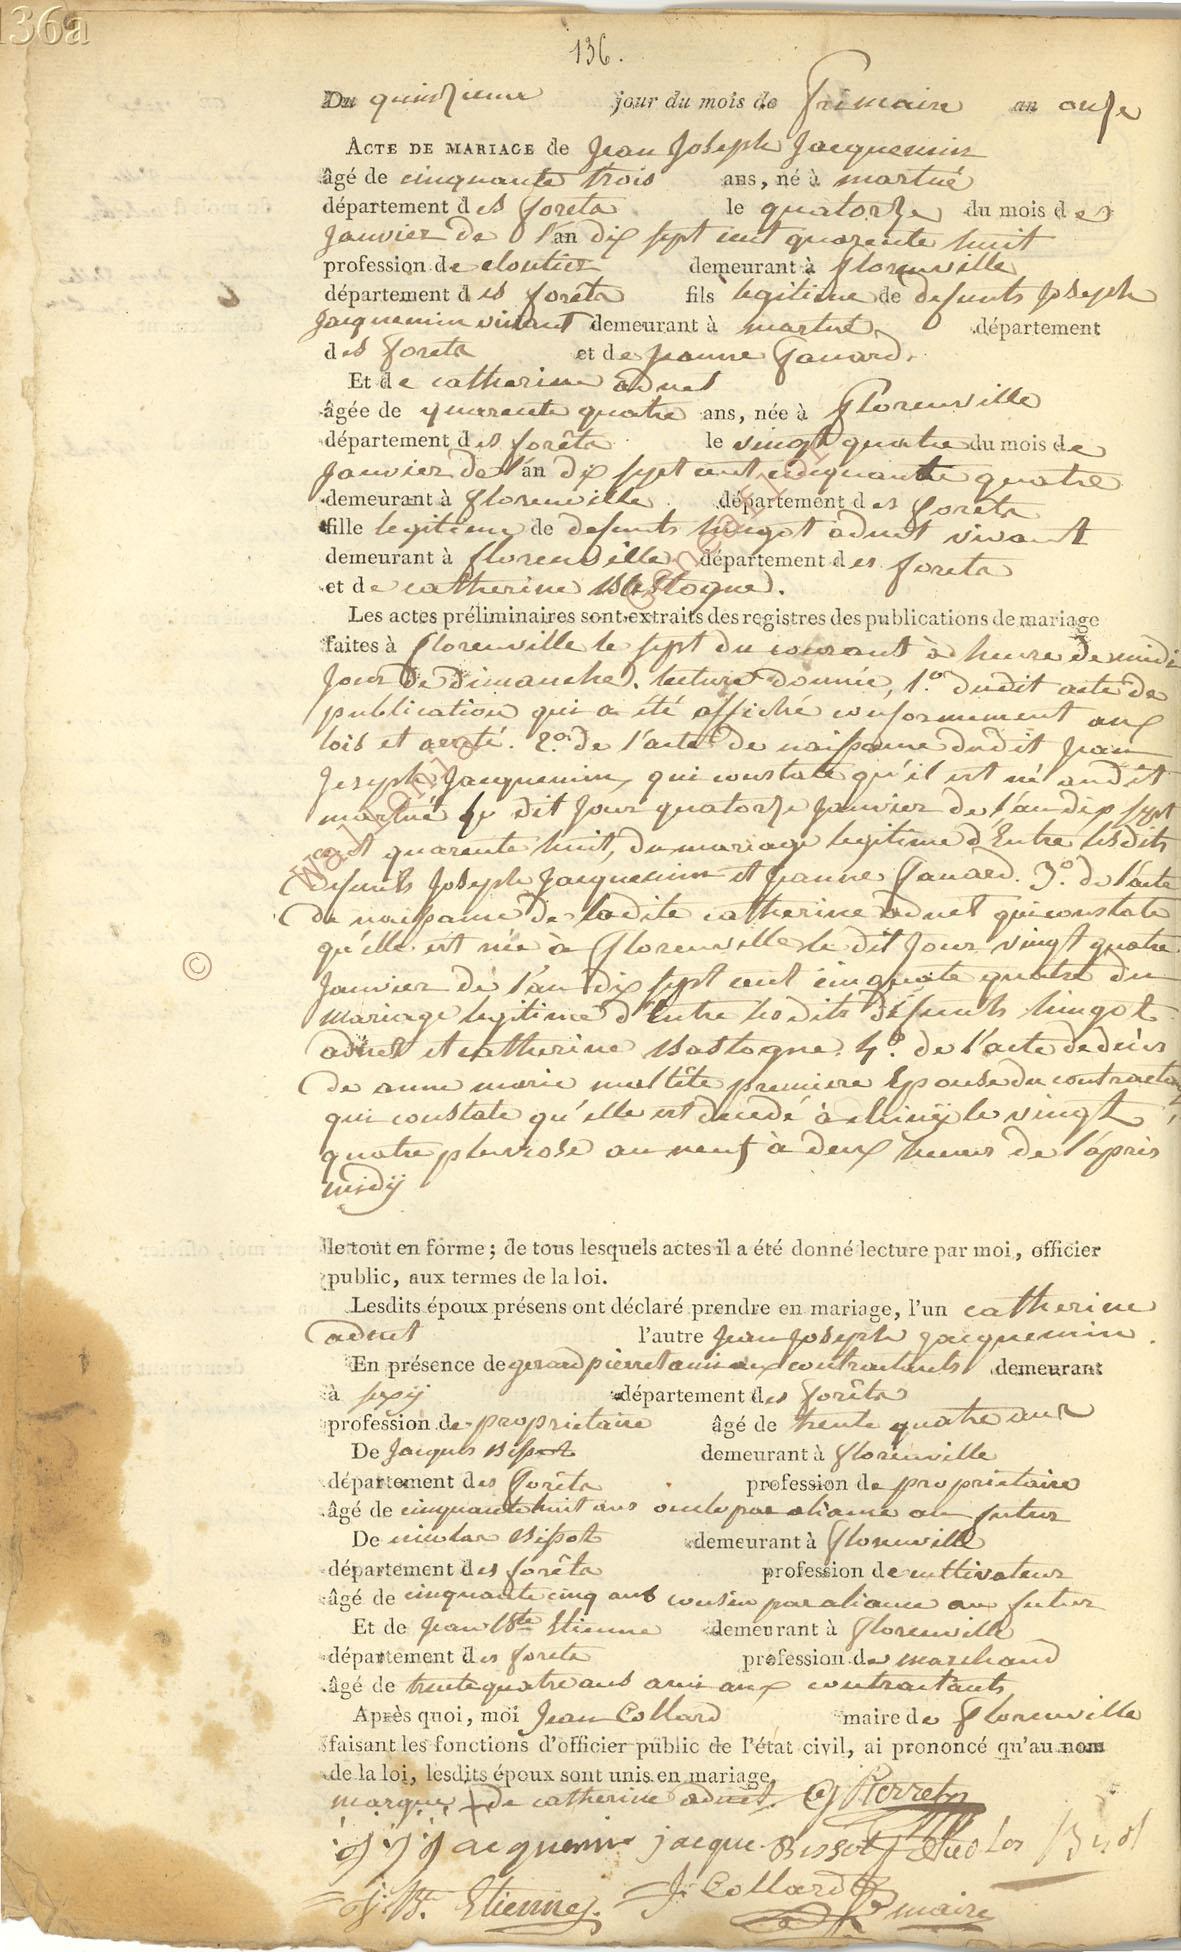 136a
136.
Du quinzieme jour du mois de frimaire an onze
ACTE DE MARIAGE de Jean Joseph Jacquemin
âgé de cinquante trois ans, né à martué
département des foréts le quatorze du mois de
Janvier de l'an dix sept cent quarente huit
profession de cloutier demeurant à florenville
département des forêts fils legitime de defunts Joseph
Jacquemin vivant demeurant à martué département
des forets et de jeanne
Et de catherine adnet
âgée de quarente quatre ans, née à florenville
département des forêts le vingt quatre du mois de
Janvier de l'an dix sept cent cinquante quatre
demeurant à florenville département des forêts
fille legitime de defunts hingot adnet vivant
demeurant à florenville département des forets
et de catherine Bastogne.
Les actes préliminaires sont extraits des registres des publications de mariage
faites à florenville le sept du courant à heure de midi
Jour de dimanche. lecture donnée, 1.º dudit acte de
publication qui a été affiché conformement aux
lois et areté. 2.º de l'acte de naissance dudit Jean
Joseph Jacquemin, qui constate qu'il est né audit
martué le dit Jour quatorze Janvier de l'an dix sept
cent quarente huit, du mariage legitime d'Entre lesdits
defunts Joseph Jacquemin et Jeanne 3.º de l'acte
de naissance de ladite catherine adnet qui constate
qu'elle est née à florenville le dit Jour vingt quatre
Janvier de l'an dix sept cent cinquate quatre du
mariage legitime d'Entre lesdits défunts hingot
adnet et catherine Bastogne. 4.º de l'acte de décès
de anne marie maltête premiere Epouse du contractant
qui constate qu'elle est décedé à chinÿ le vingt
quatre pluviose an neuf à deux heures de l'après
midÿ
le tout en forme ; de tous lesquels actes il a été donné lecture par moi, officier
public, aux termes de la loi.
Lesdits époux présens ont déclaré prendre en mariage, l'un catherine
adnet l'autre Jean Joseph Jacquemin.
En présence de gerard pierret ami aux contractants demeurant
à département des forêts
profession de propriétaire âgé de trente quatre ans
De Jacques Bissot demeurant à florenville
département des forêts profession de propriétaire
âgé de cinquante huit ans oncle par aliance au futur
De nicolas Bissot demeurant à florenville
département des forêts profession de cultivateur
âgé de cinquante cinq ans cousin par aliance au futur
Et de Jean Bte Etienne demeurant à florenville
département des forets profession de marchand
âgé de trente quatre ans ami aux contractants
Après quoi, moi Jean Collard maire de florenville
faisant les fonctions d'officier public de l'état civil, ai prononcé qu'au nom
de la loi, lesdits époux sont unis en mariage
marque + de catherine adnet. G Pierret
j j jacquemin jacque Bissot
j. Bt. Etienne J. Collard maire
©